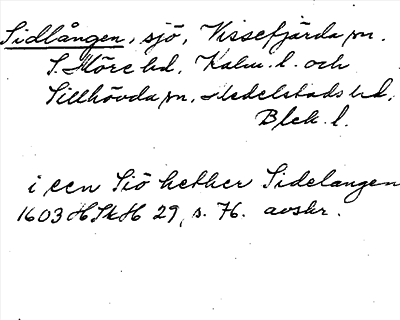 Sidlången, sjö, Vissefjärda sn.
S. Möre hd, Kalm. l. och
Sillhövda sn, Medelstads hd,
Blek. l.
i een Siö hether Sidelangen
1603 HSkH 29, s. 76. avskr.